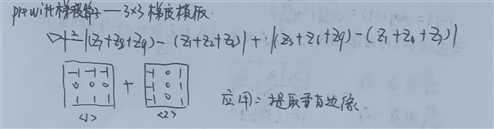 prewitt梯度算子——3×3梯度模板
▽f=|(Z7+Z8+Z9)-(Z1+Z2+Z3)|+|(Z3+Z6+Z9)-(Z1+Z4+Z7)|
-1 -1 -1
0 0 0
1 1 1
+
-1 0 1
-1 0 1
-1 0 1
<1> <2>
应用:提取垂直边缘